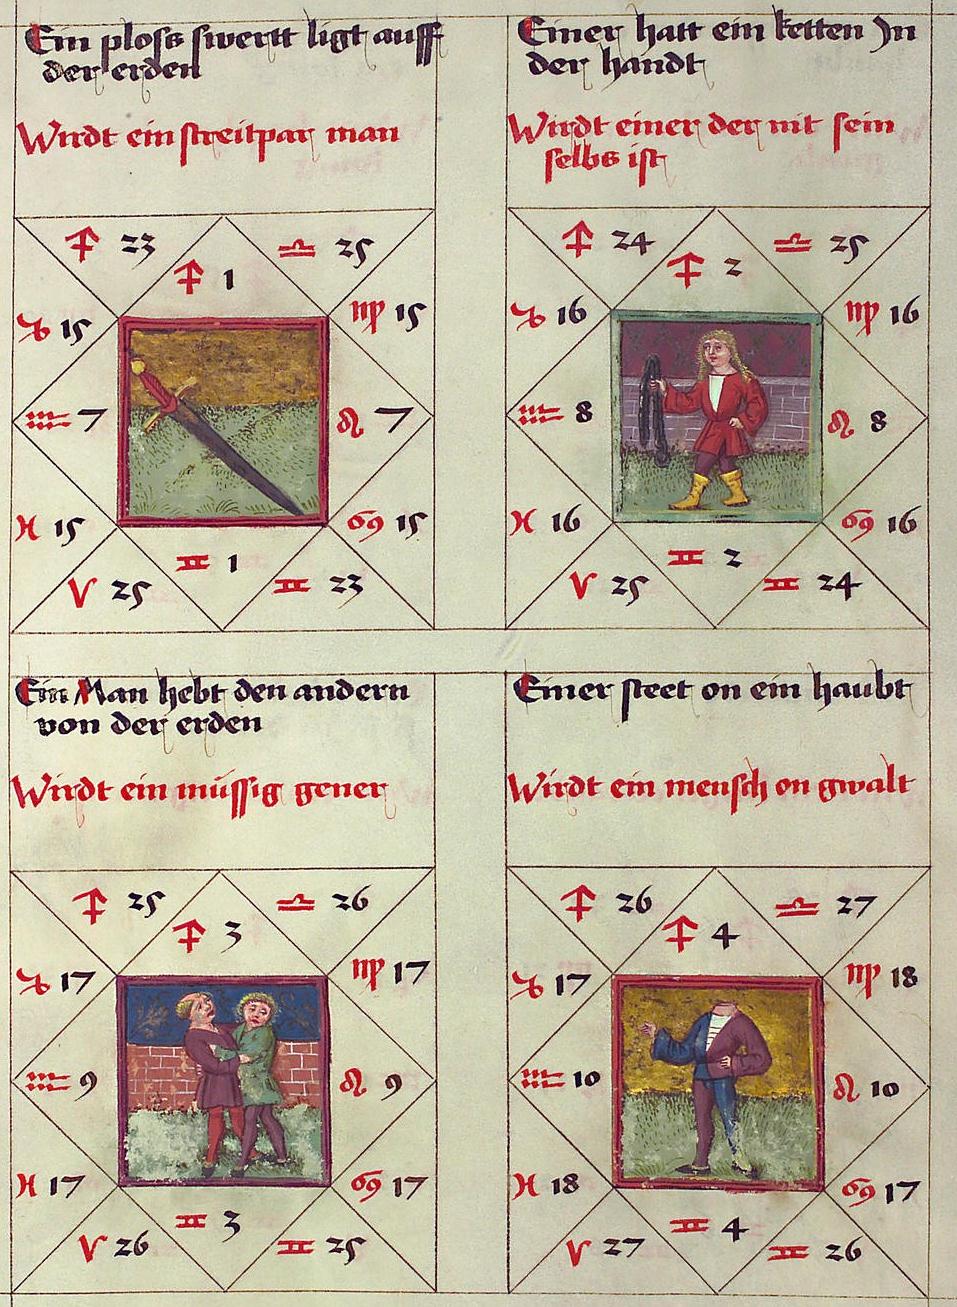 Ein ploss swertt ligt auff
der erden
Wirdt ein streitpar man
♐ 23
♎ 25
♐ 1
♑ 15
♍ 15
♒ 7
♌ 7
♓ 15
♋ 15
♊ 1
♈ 25
♊ 23
Einer hatt ein ketten In
der handt
Wirdt einer der nit sein
selbs ist
♐ 24
♎ 25
♐ 2
♑ 16
♍ 16
♒ 8
♌ 8
♓ 16
♋ 16
♊ 2
♈ 25
♊ 24
Ein Man hebt den andern
von der erden
Wirdt ein müssig gener
♐ 25
♎ 26
♐ 3
♑ 17
♍ 17
♒ 9
♌ 9
♓ 17
♋ 17
♊ 3
♈ 26
♊ 25
Einer steet on ein haubt
Wirdt ein mensch on gwalt
♐ 26
♎ 27
♐ 4
♑ 17
♍ 18
♒ 10
♌ 10
♓ 18
♋ 17
♊ 4
♈ 27
♊ 26